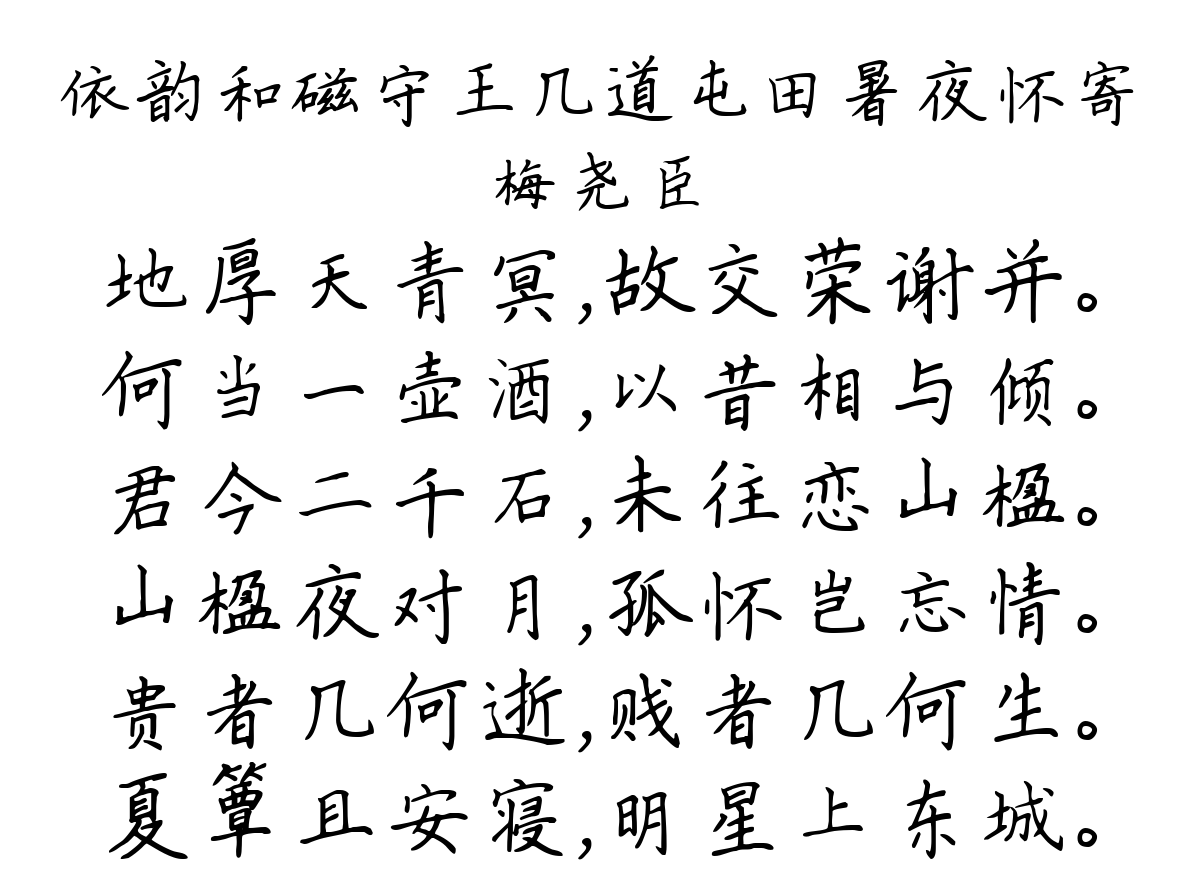 依韵和磁守王几道屯田暑夜怀寄
梅尧臣
地厚天青冥,故交荣谢并。
何当一壶酒,以昔相与倾。
君今二千石,未往恋山楹。
山楹夜对月,孤怀岂忘情。
贵者几何逝,贱者几何生。
夏簟且安寝,明星上东城。